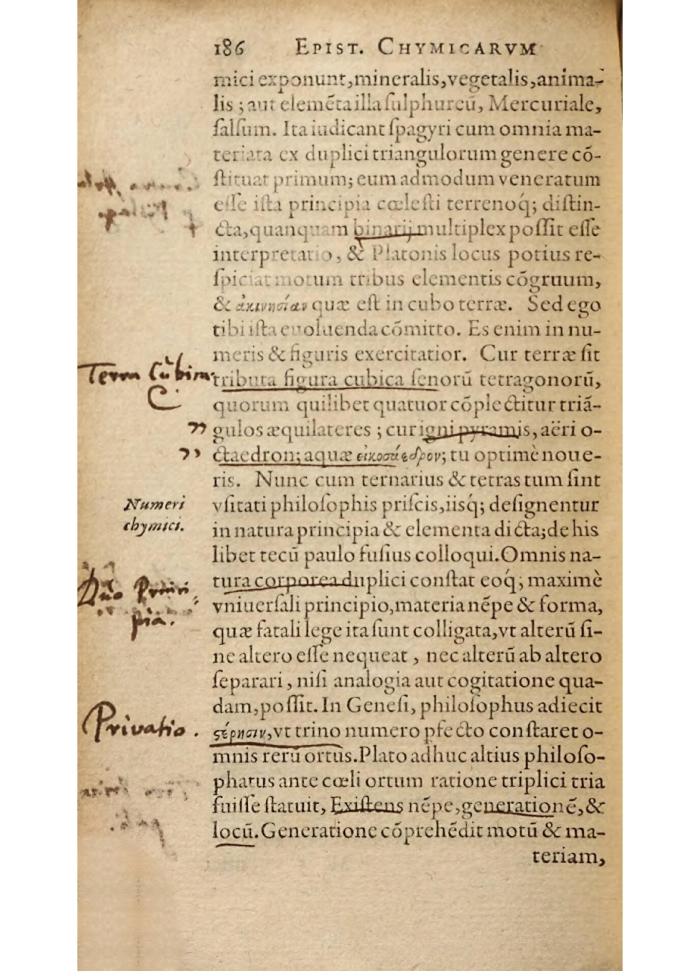 186 EPIST. CHYMICARVM
mici exponunt,mineralis,vegetalis,anima-
lis ; aut elemẽta illa ſulphureũ, Mercuriale,
ſalſum. Ita iudicant ſpagyri cum omnia ma-
teriata ex duplici triangulorum genere cõ-
ſtituat primum; eum admodum veneratum
eſſe iſta principia cœleſti terrenoq; diſtin-
cta,quanquam binarij multiplex poſſit eſſe
interpretatio, & Platonis locus potius re-
ſpiciat motum tribus elementis cõgruum,
& ἀκινησίαν quæ eſt in cubo terræ. Sed ego
tibi iſta euoluenda cõmitto. Es enim in nu-
meris & figuris exercitatior. Cur terræ ſit
Terra Cubica
tributa figura cubica ſenorũ tetragonorũ,
quorum quilibet quatuor cõplectitur triã-
gulos æquilateres ; cur igni pyramis, aëri o-
ctaedron; aquæ εἰκοσάεδρον; tu optimè noue-
ris. Nunc cum ternarius & tetras tum ſint
Numeri
chymici.
vſitati philoſophis priſcis,iisq; deſignentur
in natura principia & elementa dicta;de his
libet tecũ paulo fuſius colloqui.Omnis na-
Duo Princi-
pia.
tura corporea duplici conſtat eoq; maximè
vniuerſali principio,materia nẽpe & forma,
quæ fatali lege ita ſunt colligata,vt alterũ ſi-
ne altero eſſe nequeat , nec alterũ ab altero
ſeparari , niſi analogia aut cogitatione qua-
dam,poſſit. In Geneſi, philoſophus adiecit
Privatio.
ϛέρησιν,vt trino numero pfecto conſtaret o-
mnis rerũ ortus.Plato adhuc altius philoſo-
phatus ante cœli ortum ratione triplici tria
fuiſſe ſtatuit, Exiſtens nẽpe,generationẽ,&
locũ.Generatione cõprehẽdit motũ & ma-
teriam,